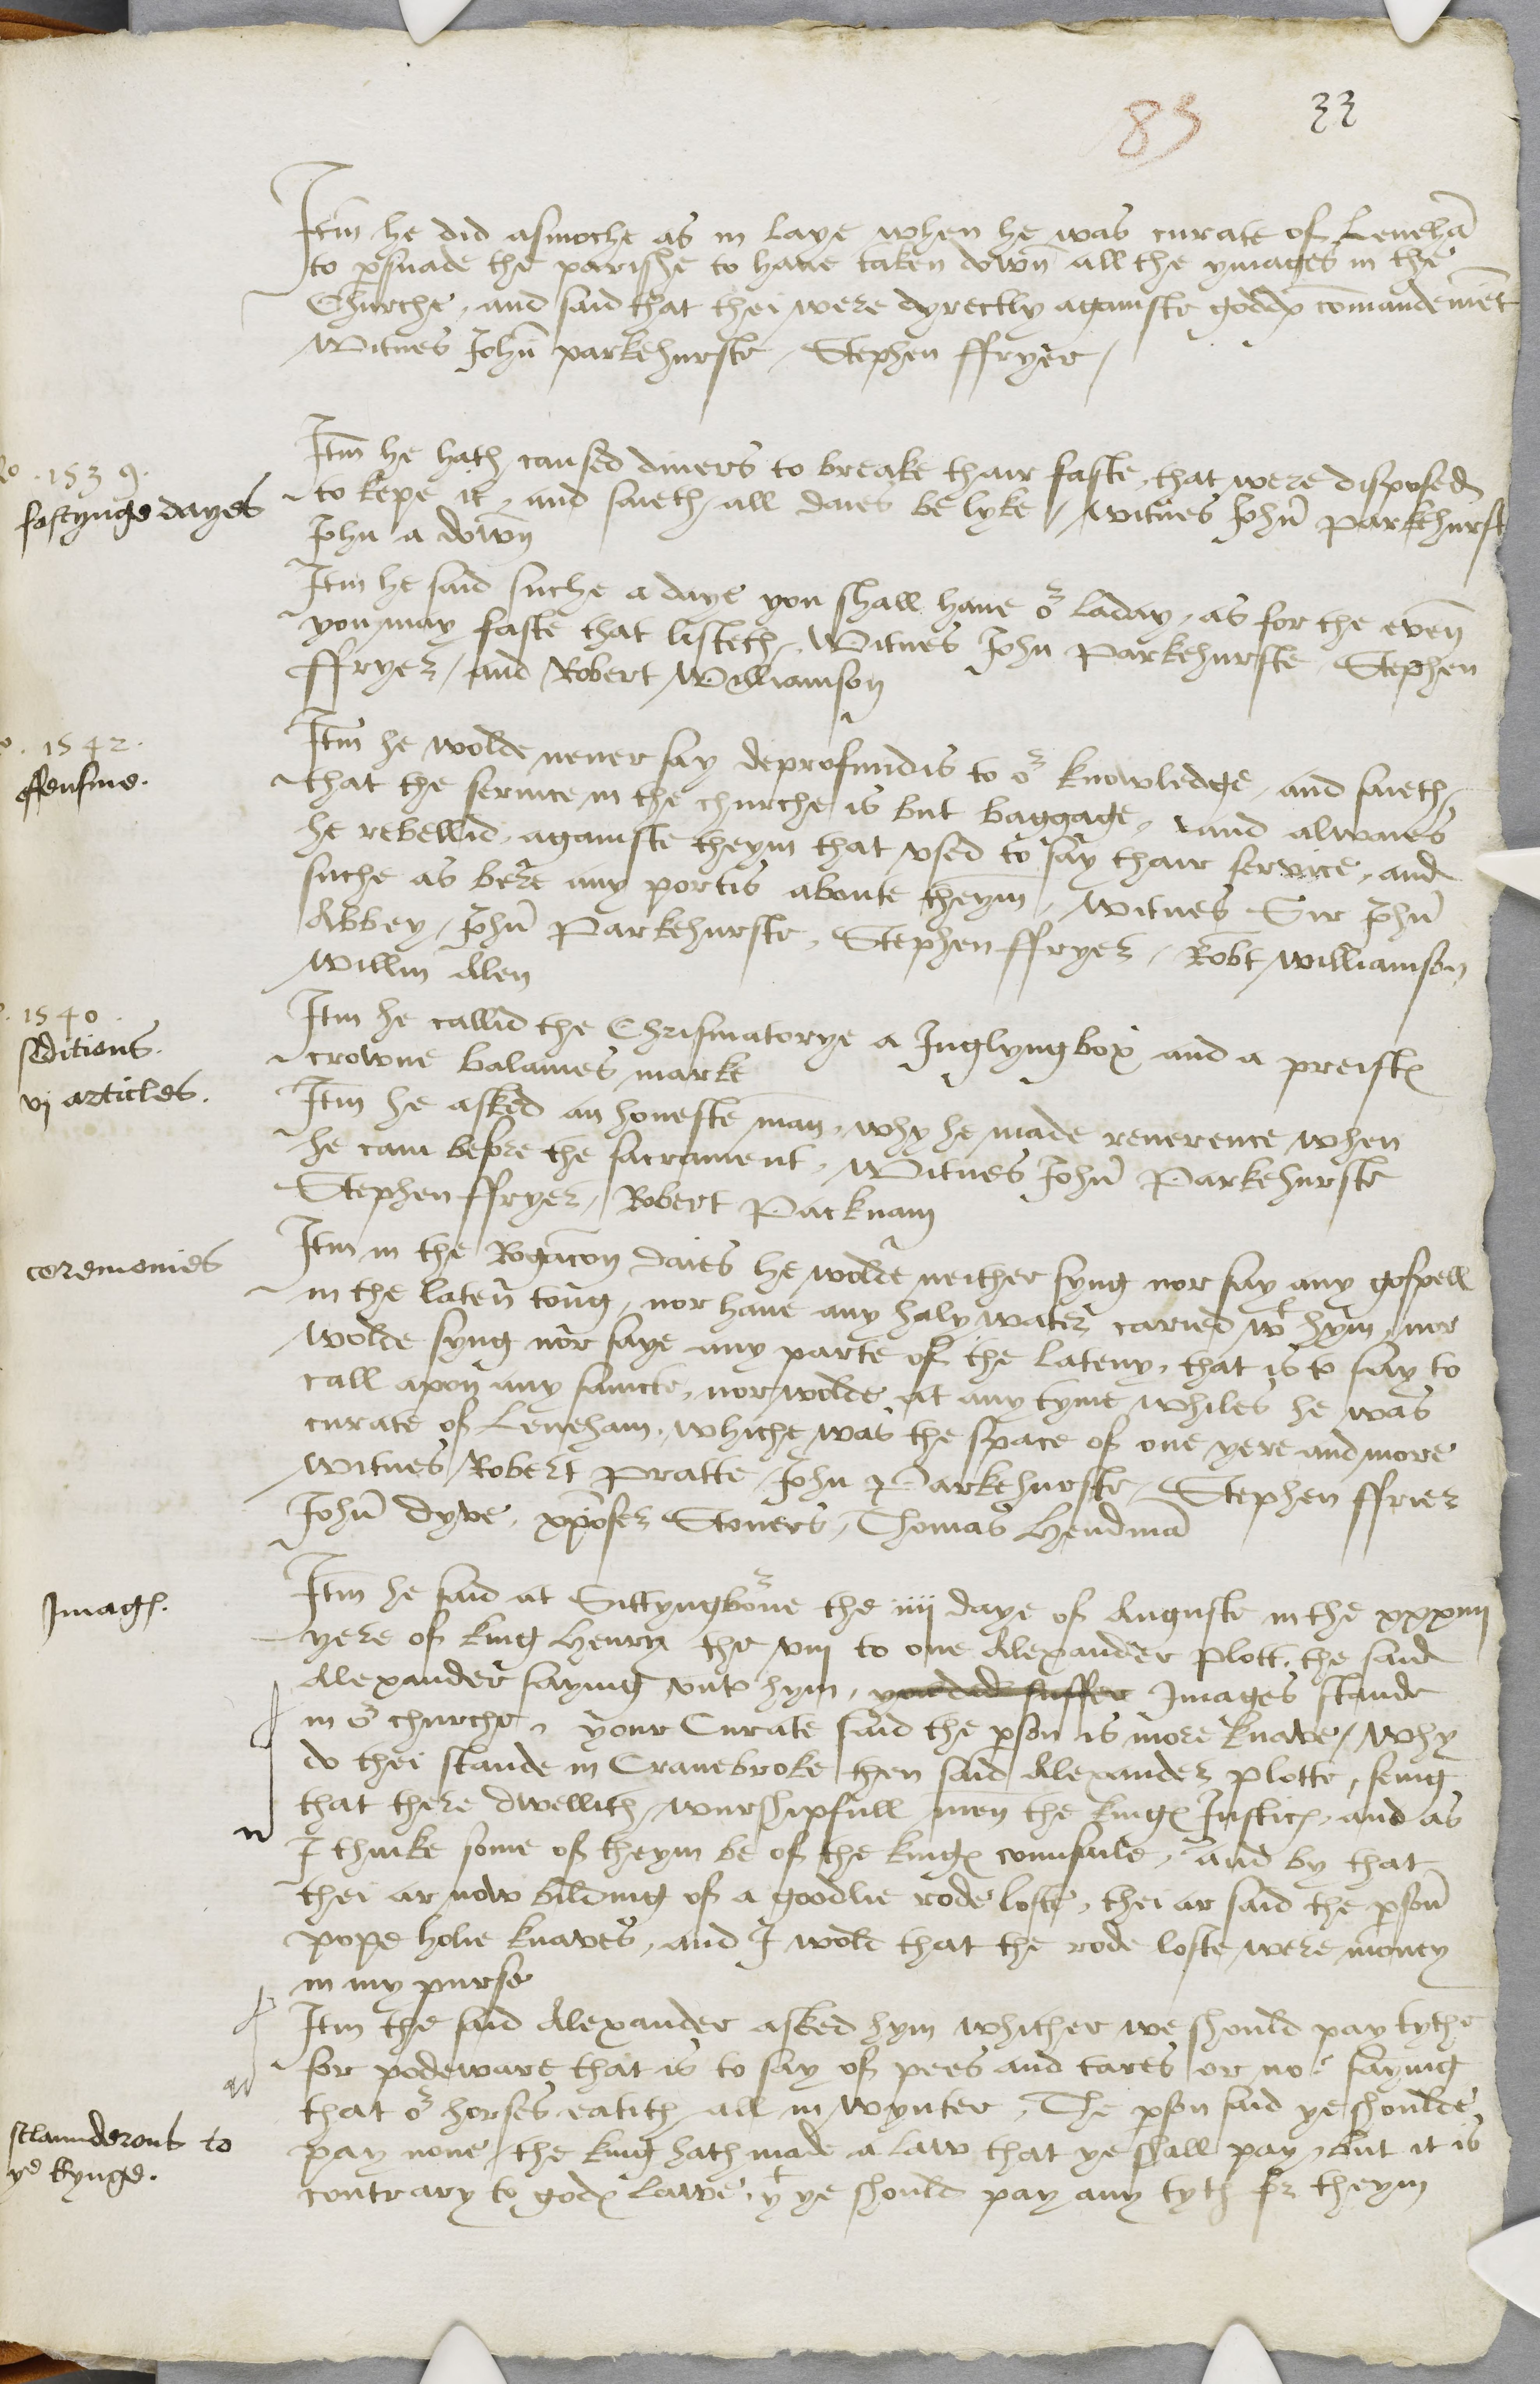 83 33
Itm he did asmoche as in laye when he was curate of Leneham
to psuade the parishe to have taken down all the ymages in the
Churche, and said that thei were dyrectly againste godds comandement
Witnes John parkehurste, Stephen ffryer,
1539.
fastynge dayes
Itm he hath caused divers to breake thair faste, that were disposed
to kepe it, and saieth, all daies be lyke, witnes John Parkehurst
John a down
Itm he said suche a daye you shall have or laday, as for the even
you may faste that listeth, Witnes John Parkehurste Stephen
ffryer, and Robert Williamson
1542.
offensive.
Itm he wolde never say deprofundis to or knowledge, and saieth,
that the service in the churche is but baggage, and alwaies
he rebellid, againste theym that vsed to say thair service, and
suche as bere any portis aboute theym, witnes Sir John
Abbey, John Parkehurste, Stephen ffryer, Robt Williamson
Willm Alen
1540.
seditious.
vj articles.
Itm he callid the Chrismatorye a Juglyng box and a preists
crowne balaames marke
Itm he asked an honeste man, why he made reverence when
he cam before the sacrament, Witnes John Parkehurste
Stephen ffryer, Robert Packnam
ceremonies
Itm in the Rogacon daies he wolde neither syng nor say any gospell
in the laten tong, nor have any haly water caried wt hym, nor
wolde syng nor saye any parte of the lateny, that is to say to
call apon any saincte, nor wolde at any tyme whiles he was
curate of Leneham, whiche was the space of one yere and more
Witnes Robert Pratte John Parkehurste, Stephen ffrier
John dyve, xpofer Stoners, Thomas Hendma
Images.
Itm he said at Sittyngborne the iiij daye of Auguste in the xxxiiij
yere of king Henry the viij to one Alexander Plott, the said
Alexander saying vnto hym, you did suffer Images stande
in or churche, your Curate said the pson is more knave, Why
do thei stande in Cranebroke then said Alexander Plotte, seing
that there dwellith, wurshipfull men the kings Justics, and as
I thinke some of theym be of the kings counsaile, and by that
thei ar now bilding of a goodlie rode lofte, thei ar said the pson
pope holie knaves, and I wold that the rode lofte were money
in my purse
Itm the said Alexander asked hym whither we should pay tythe
for podeware that is to say of pees and tares or no, saying
that or horses eatith all in wynter, The pson said ye shoulde
sclaunderous to
ye kynge.
pay none, the king hath made a law that ye shall pay, but it is
contrary to gods lawe, yt ye should pay any tyth for theym